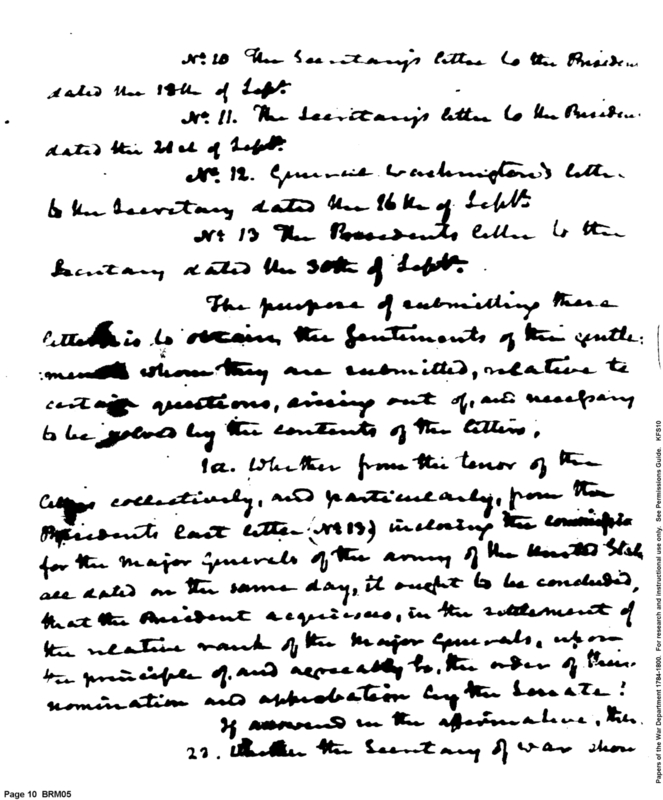 No. 10 The Secretary's letter to the Presiden
dated the 18th of Sept.
No. 11. The Secretary's letter to the Presiden
dated the 21st of Sept.
No. 12. General Washington's lette
to the Secretary dated the 16th of Sept.
No 13 The Presidents letter to the
Secretary dated the 30th of Sept.
The purpose of submitting these
letters is to obtain the Sentiments of the gentle:
:men whom they are submitted, relative to
certain questions, arising out of, and necessary
to be solved by the contents of the letters,
1st. Whether from the tenor of the
letters collectively, and particularly, from the
Presidents last letter (No 13) inclosing the commissio
for the Major Generals of the army of the United State
all dated on the same day, it ought to be concluded,
that the President acquiesces, in the settlement of
the relative rank of the Major Generals, upon
the principle of, and agreeably to, the order of their
nomination and approbation by the Senate?
If answered in the affirmative, then
2d. Whether the Secretary of war shou
Page 10 BRM05
Papers of the War Department 1784-1800. For research and instructional use only. See Permissions Guide. KFS10